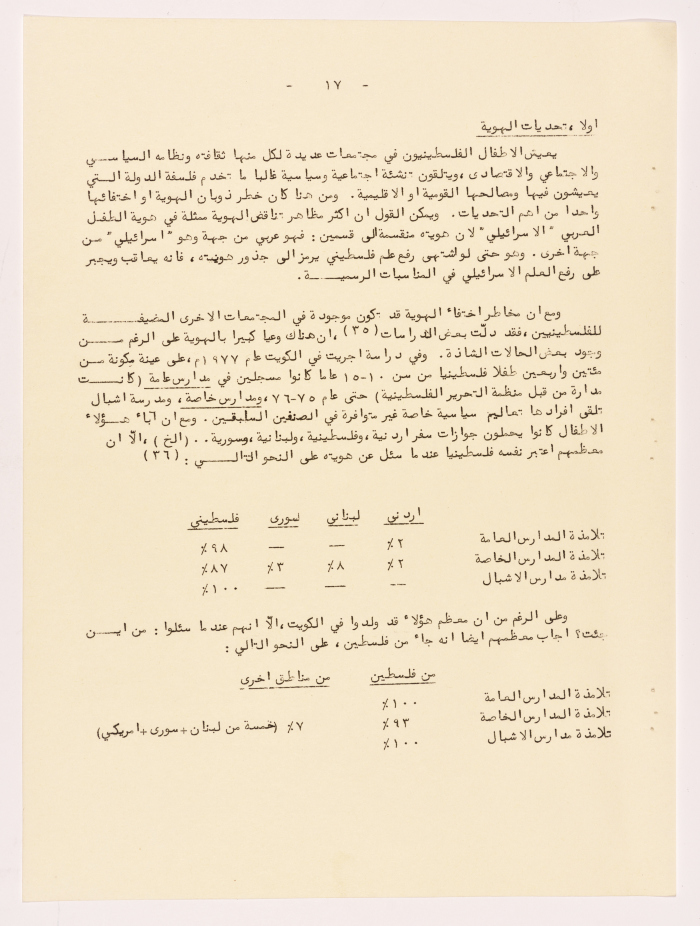 - ١٧ -
اولا ، تحديات الهوية
يعيش الاطفال الفلسطينيون في مجتمعات عديدة لكل منها ثقافته ونظامه السياسي
والاجتماعي والاقتصادى ، ويتلقون تنشئة اجتماعية وسياسية غالبا ما تخدم فلسفة الدولة التي
يعيشون فيها ومصالحها القومية او الاقليمية . ومن هنا كان خطر ذوبان الهوية او اختفائها
واحدا من اهم التحديات . ويمكن القول ان اكثر مظاهر تناقض الهوية ممثلة في هوية الطفل
العربي "الاسرائيلي" لان هويته منقسمة الى قسمين : فهو عربي من جهة وهو "اسرائيلي" من
جهة اخرى . وهو حتى لو اشتهى رفع علم فلسطيني يرمز الى جذور هويته ، فانه يعاقب ويجبر
على رفع العلم الاسرائيلي في المناسبات الرسمية .
ومع ان مخاطر اختفاء الهوية قد تكون موجودة في المجتمعات الاخرى المضيفة
للفلسطينيين ، فقد دلّت بعض الدراسات (٣٥) ، ان هناك وعيا كبيرا بالهوية على الرغم من
وجود بعض الحالات الشاذة . وفي دراسة اجريت في الكويت عام ١٩٧٧م ، على عينة مكونة من
مئتين واربعين طفلا فلسطينيا من سن ١٠-١٥ عاما كانوا مسجلين في مدارس عامة (كانت
مدارة من قبل منظمة التحرير الفلسطينية) حتى عام ٧٥-٧٦ ، ومدارس خاصة ، ومدرسة اشبال
تلقى افرادها تعاليم سياسية خاصة غير متوافرة في الصنفين السابقين . ومع ان آباء هؤلاء
الاطفال كانوا يحملون جوازات سفر اردنية ، وفلسطينية ، ولبنانية ، وسورية .. (الخ) ، الاّ ان
معظمهم اعتبر نفسه فلسطينيا عندما سئل عن هويته على النحو التالي : (٣٦)
اردني لبناني سورى فلسطيني
تلامذة المدارس العامة ٢٪ — — ٩٨٪
تلامذة المدارس الخاصة ٢٪ ٨٪ ٣٪ ٨٧٪
تلامذة مدارس الاشبال -- — — ١٠٠٪
وعلى الرغم من ان معظم هؤلاء قد ولدوا في الكويت ، الاّ انهم عندما سئلوا : من اين
جئت؟ اجاب معظمهم ايضا انه جاء من فلسطين ، على النحو التالي :
من فلسطين من مناطق اخرى
تلامذة المدارس العامة ١٠٠٪
تلامذة المدارس الخاصة ٩٣٪ ٧٪ (خمسة من لبنان + سورى + امريكي)
تلامذة مدارس الاشبال ١٠٠٪